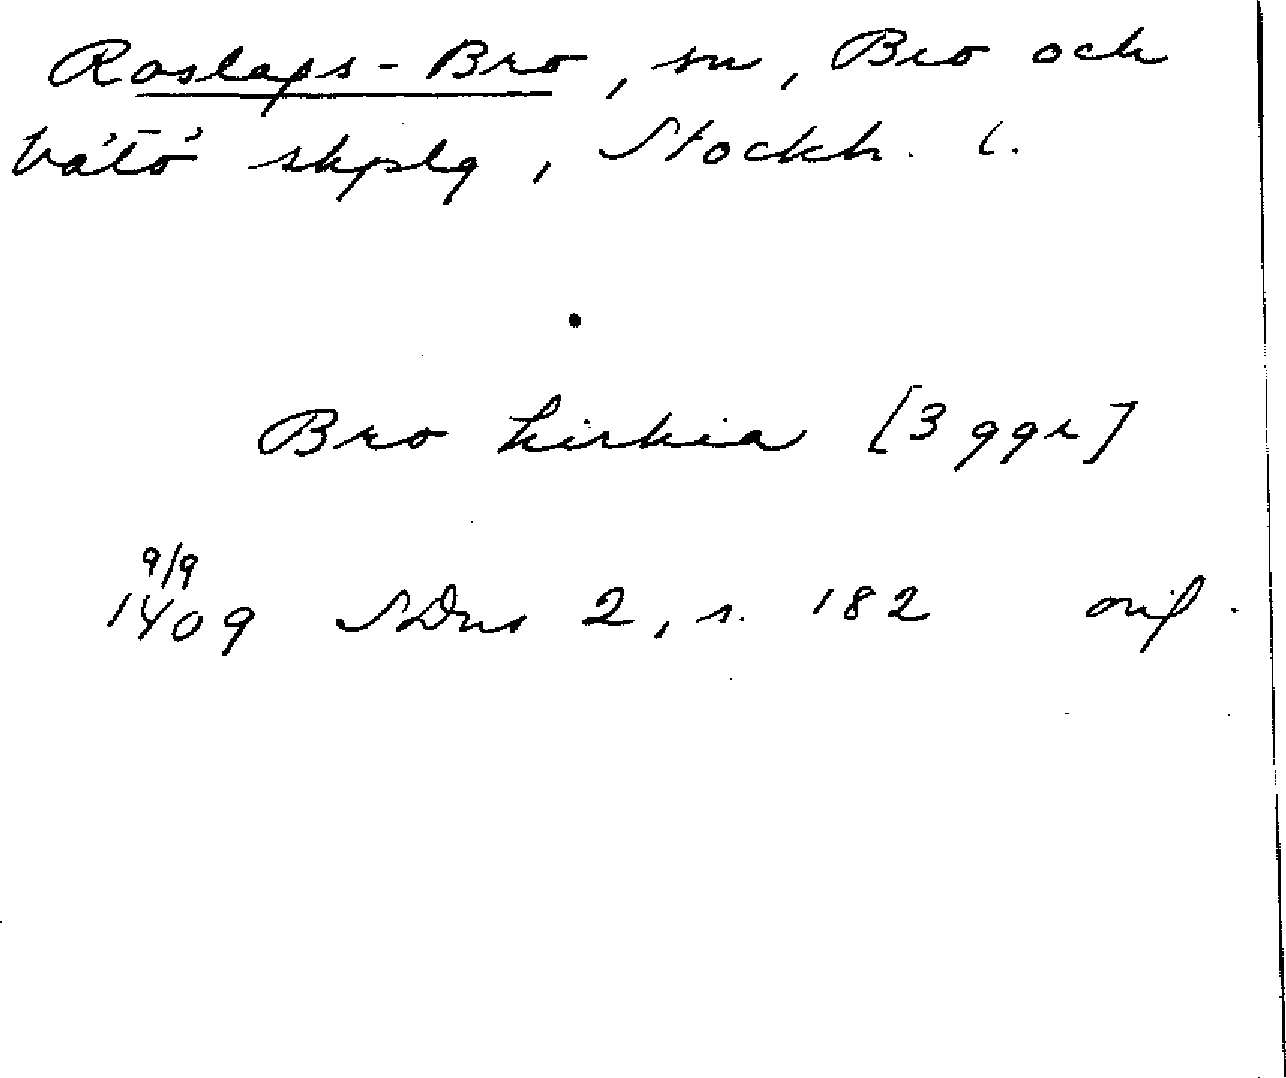 Roslags-Bro, sn, Bro och
Vätö skplg, Stockh. l.
Bro kirkia [3 ggr]
9/9
1409 SDns 2, s. 182 orig.